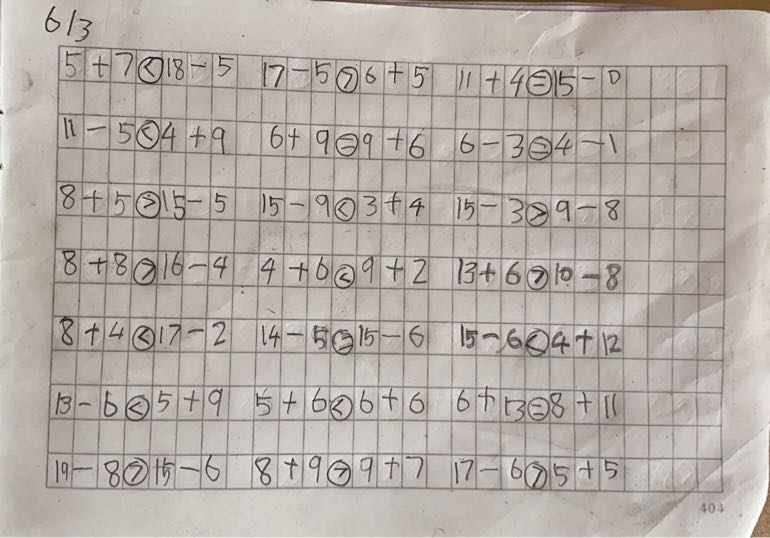 6/3
5+7<18-5 17-5>6+5 11+4=15-0
11-5<4+9 6+9=9+6 6-3=4-1
8+5>15-5 15-9<3+4 15-3>9-8
8+8>16-4 4+6<9+2 13+6>10-8
8+4<17-2 14-5=15-6 15-6<4+12
13-6<5+9 5+6<6+6 6+13=8+11
19-8>15-6 8+9>9+7 17-6>5+5
404